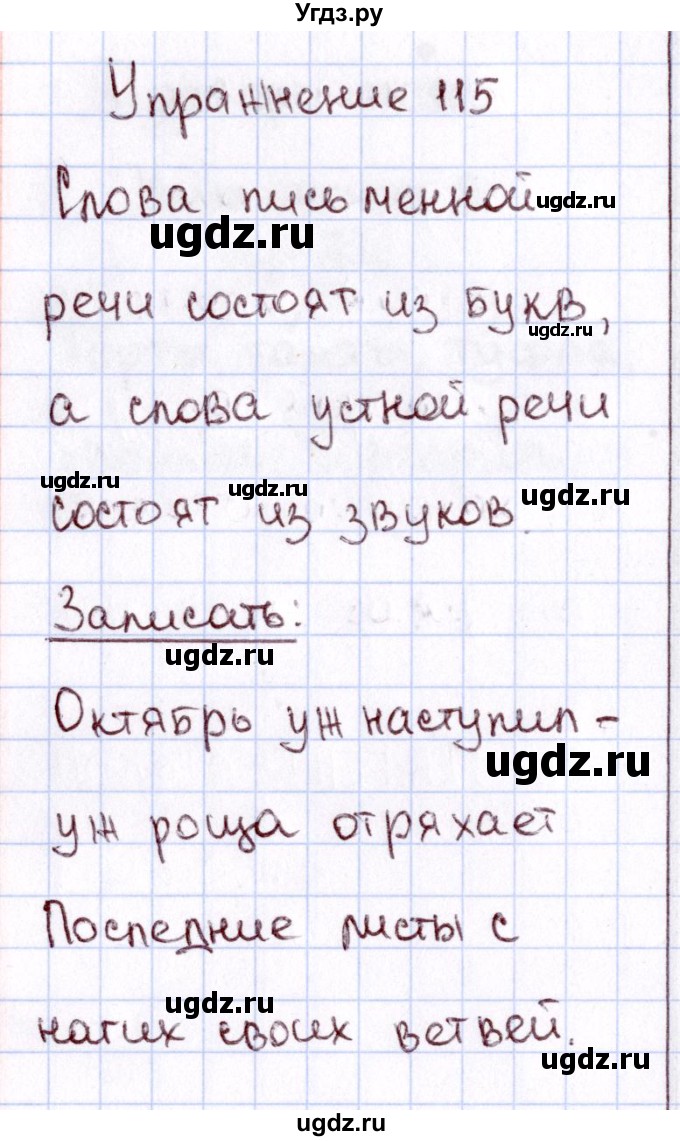 Угдз.ру
Упражнение 115
Слова письменной ugdz.ru
ugdz.ru
речи состоят из букв,
ugdz.ru
а слова устной речи
ugdz.ru ugdz.ru ugdz.ru
состоят из звуков.
Записать:
ugdz.ru
Октябрь уж наступил -
ugdz.ru
уж роща отряхает
Последние листы с
ugdz.ru
нагих своих ветвей.
ugdz.ru
ugdz.ru